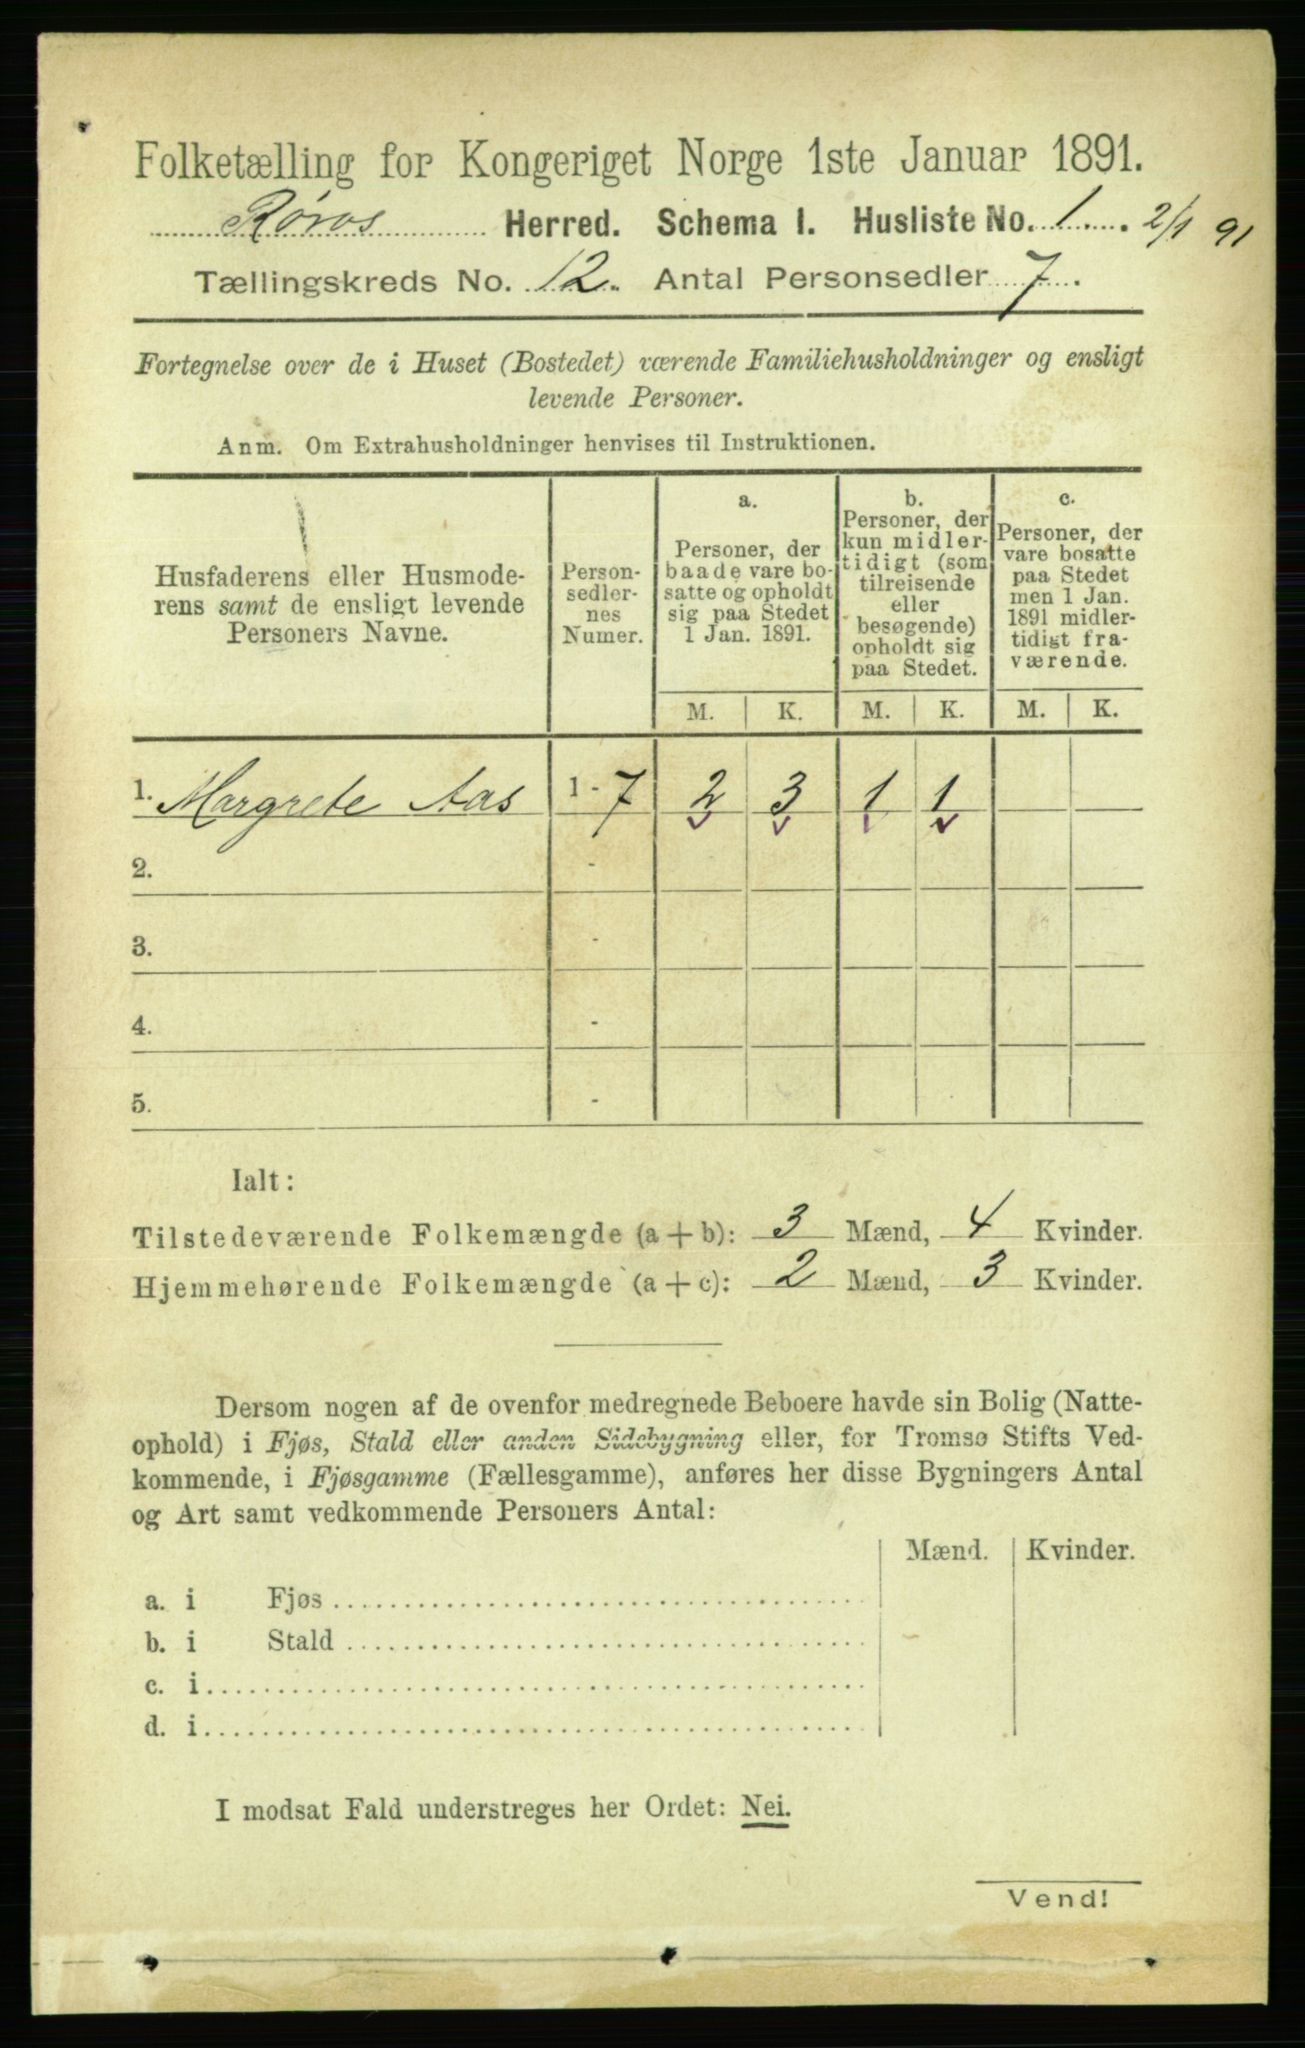 Folketælling for Kongeriget Norge 1ste Januar 1891.
Røros Herred. Schema I. Husliste No. 1. 2/1 91
Tællingskreds No. 12. Antal Personsedler 7.
Fortegnelse over de i Huset (Bostedet) værende Familiehusholdninger og ensligt
levende Personer.
Anm. Om Extrahusholdninger henvises til Instruktionen.
Husfaderens eller Husmode-
rens samt de ensligt levende
Personers Navne.
Person-
sedler-
nes
Numer.
a.
Personer, der
baade vare bo-
satte og opholdt
sig paa Stedet
1 Jan. 1891.
b.
Personer, der
kun midler-
tidigt (som
tilreisende
eller
besøgende)
opholdt sig
paa Stedet.
c.
Personer, der
vare bosatte
paa Stedet
men 1 Jan.
1891 midler-
tidigt fra-
værende.
M. K. M. K. M. K.
1. Margrete Aas 1 - 7 2 3 1 1
2. -
3. -
4. -
5. -
Ialt:
Tilstedeværende Folkemængde (a + b): 3 Mænd, 4 Kvinder.
Hjemmehørende Folkemængde (a + c): 2 Mænd, 3 Kvinder.
Dersom nogen af de ovenfor medregnede Beboere havde sin Bolig (Natte-
ophold) i Fjøs, Stald eller anden Sidebygning eller, for Tromsø Stifts Ved-
kommende, i Fjøsgamme (Fællesgamme), anføres her disse Bygningers Antal
og Art samt vedkommende Personers Antal:
Mænd. Kvinder.
a. i Fjøs
b. i Stald
c. i
d. i
I modsat Fald understreges her Ordet: Nei.
Vend!